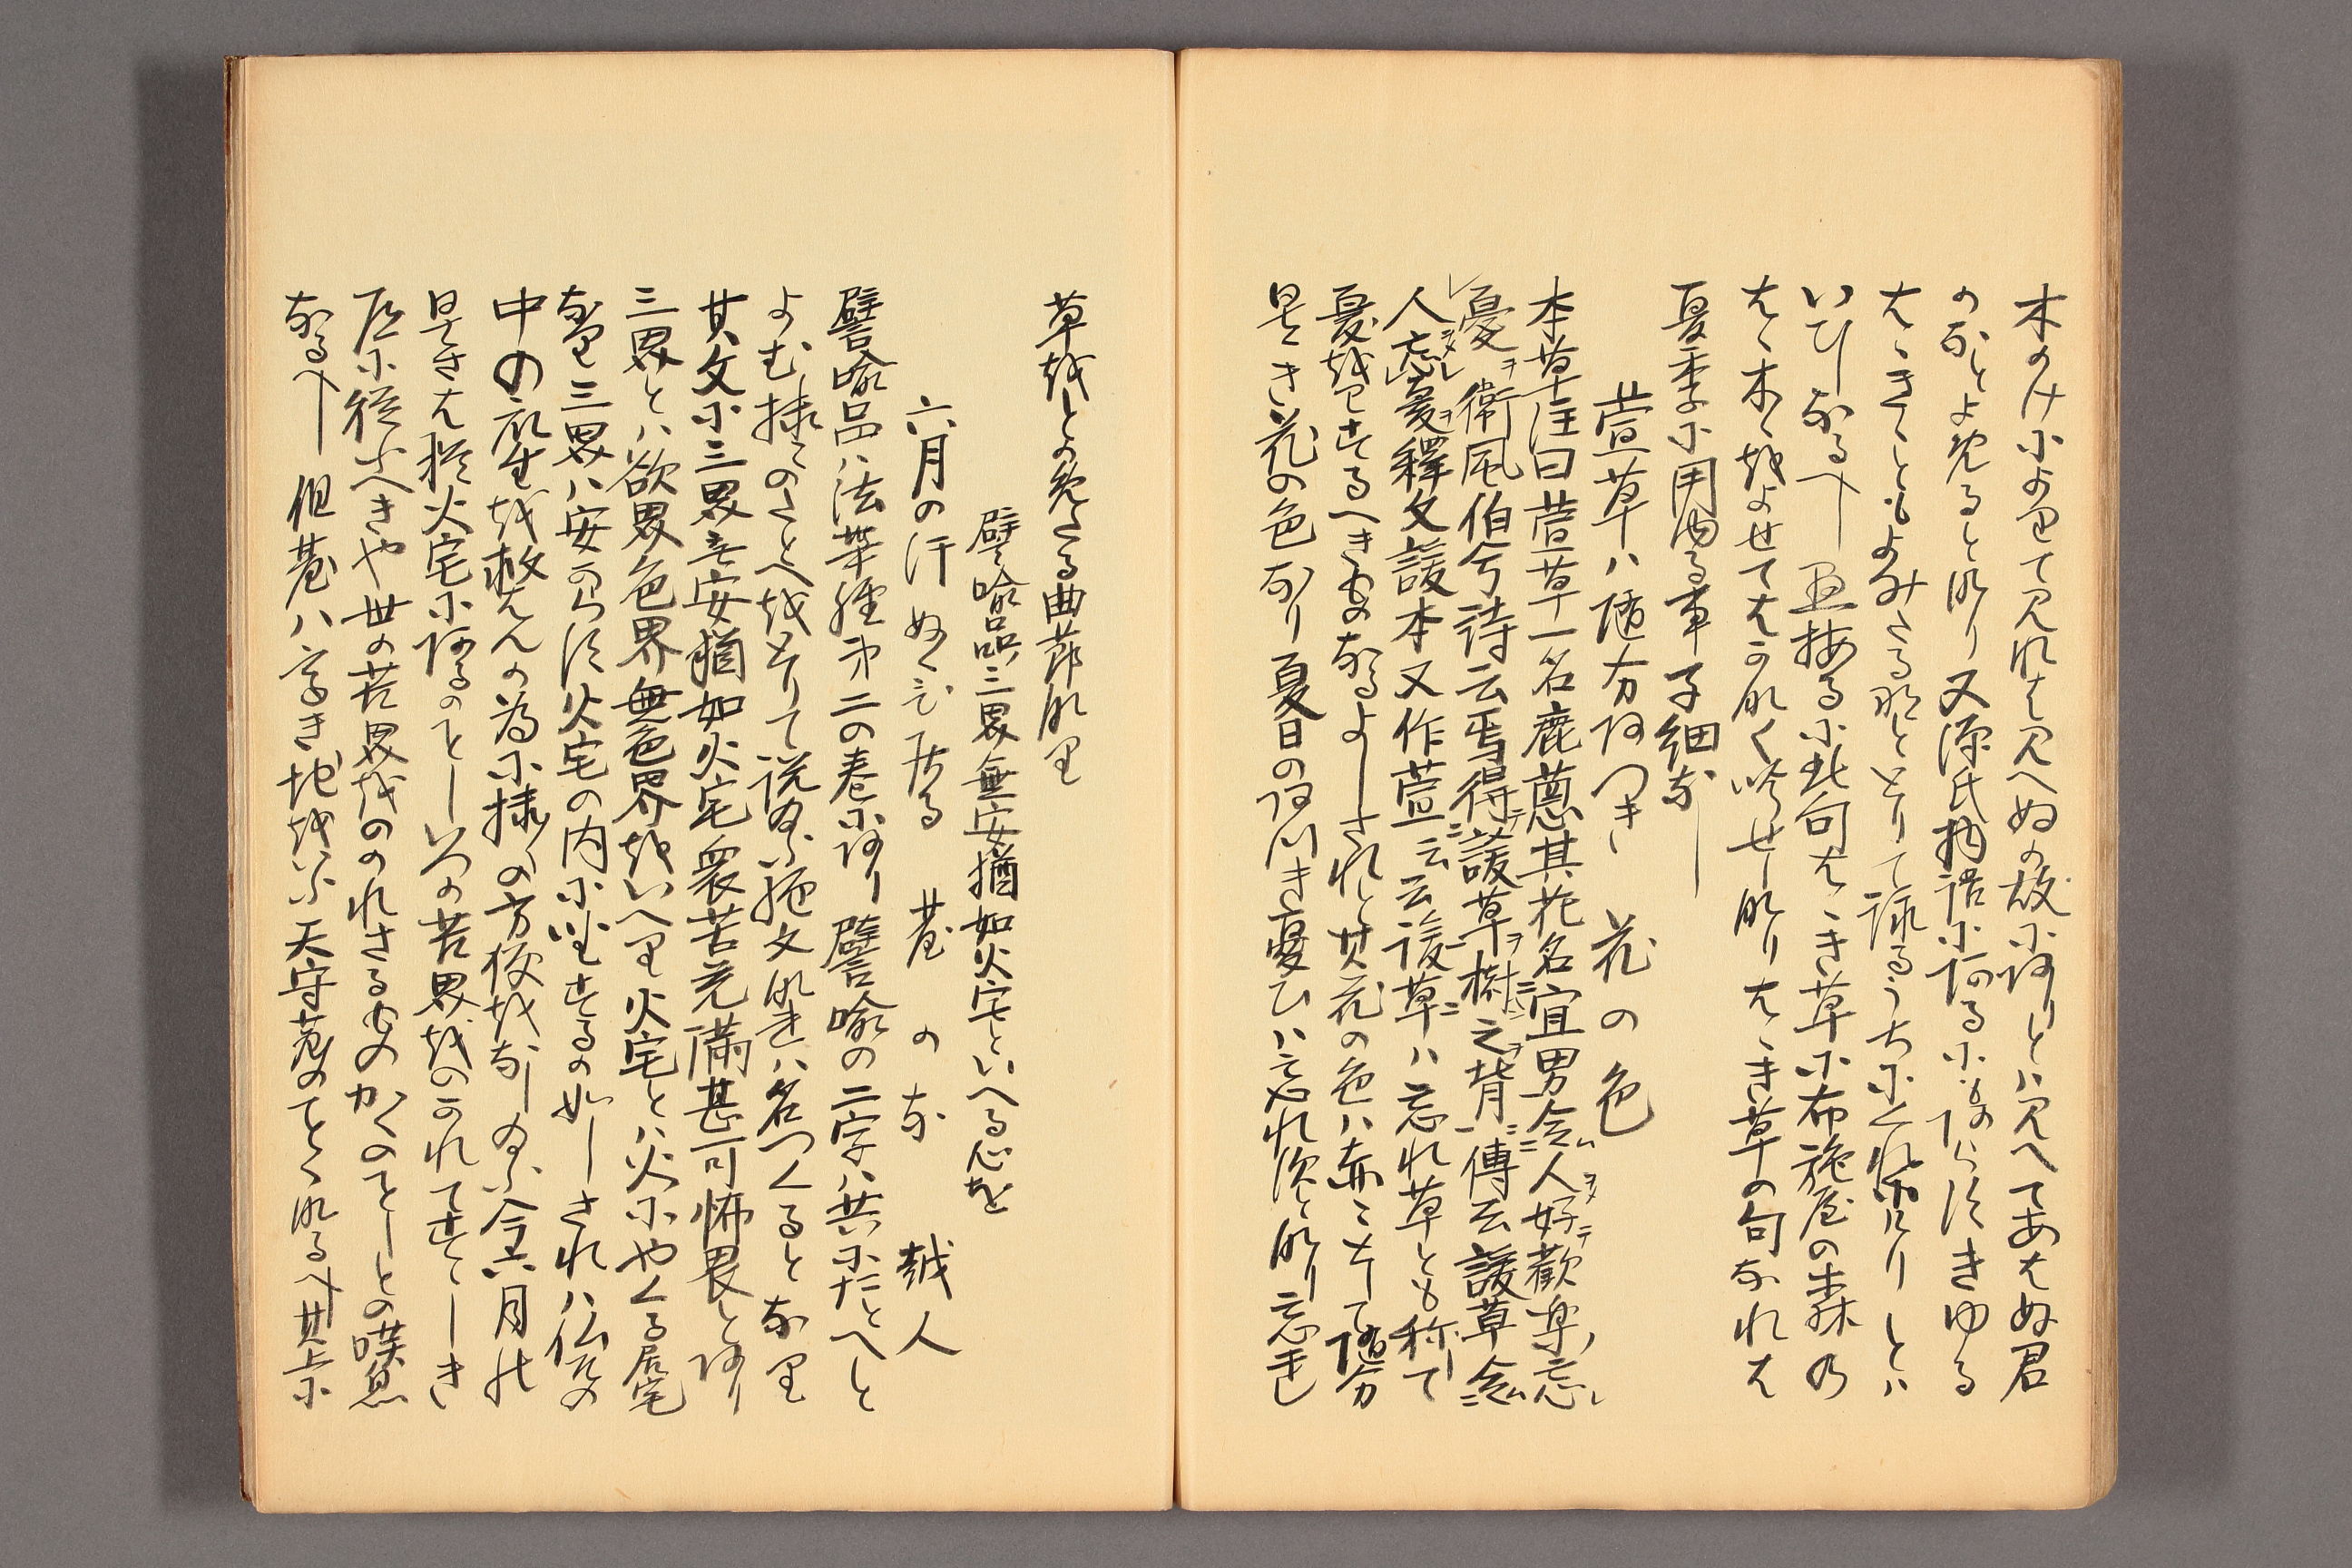 木のけによりて見れは見へぬの故にありとは見へてあはぬ君
のなとよめると也又源氏物語にあるにもあらすきゆる
はゝきゝともよみたる那ととりて詠るうちにくれ
いひしなるへし 按るに此句はゝき草に布施屋の森の
はゝ木ゝをよせてはかなく咲せし也はゝき草の句なれは
夏季に用ゆる事子細なし
萱草ハ随分あつき花の色
本草註曰萱草一名鹿葱其花名宜男令人好歓楽忘
憂衛風伯兮詩云焉得諼草樹之背傳云諼草令
人忘憂釋文諼本又作萱云云諼草ハ忘れ草とも称して
憂をわするへきものなるよしされと其花の色ハ赤くして随分
暑き花の色なり夏日のあつき憂ひハ忘れすと也忘れし
草をとよめる曲節なり
譬喩品三界無安猶如火宅といへる心を
六月の汗ぬくひ居る臺のな 越人
譬喩品ハ法華経第二の巻にあり譬喩の二字ハ共にたとへと
よむ様々のたとへをとりて説給ふ經文なれハ名つくるとなり
其文に三界無安猶如火宅衆苦充満甚可怖畏とあり
三界とハ欲界色界無色界をいへり火宅とハ火にやくる居宅
なり三界ハ安からす火宅の内に坐するの如しされハ仏の
中の衆生を救はんの為に様々の方便をなし給ふ今六月の
暑さは猶火宅にあるのことしいつの苦界をのかれてすゝしき
處に從ふへきや世の苦界をのかれさるものかくのことしとの嘆息
なるへし但臺ハ高き地をいふ天守臺のことくなるへし其上に